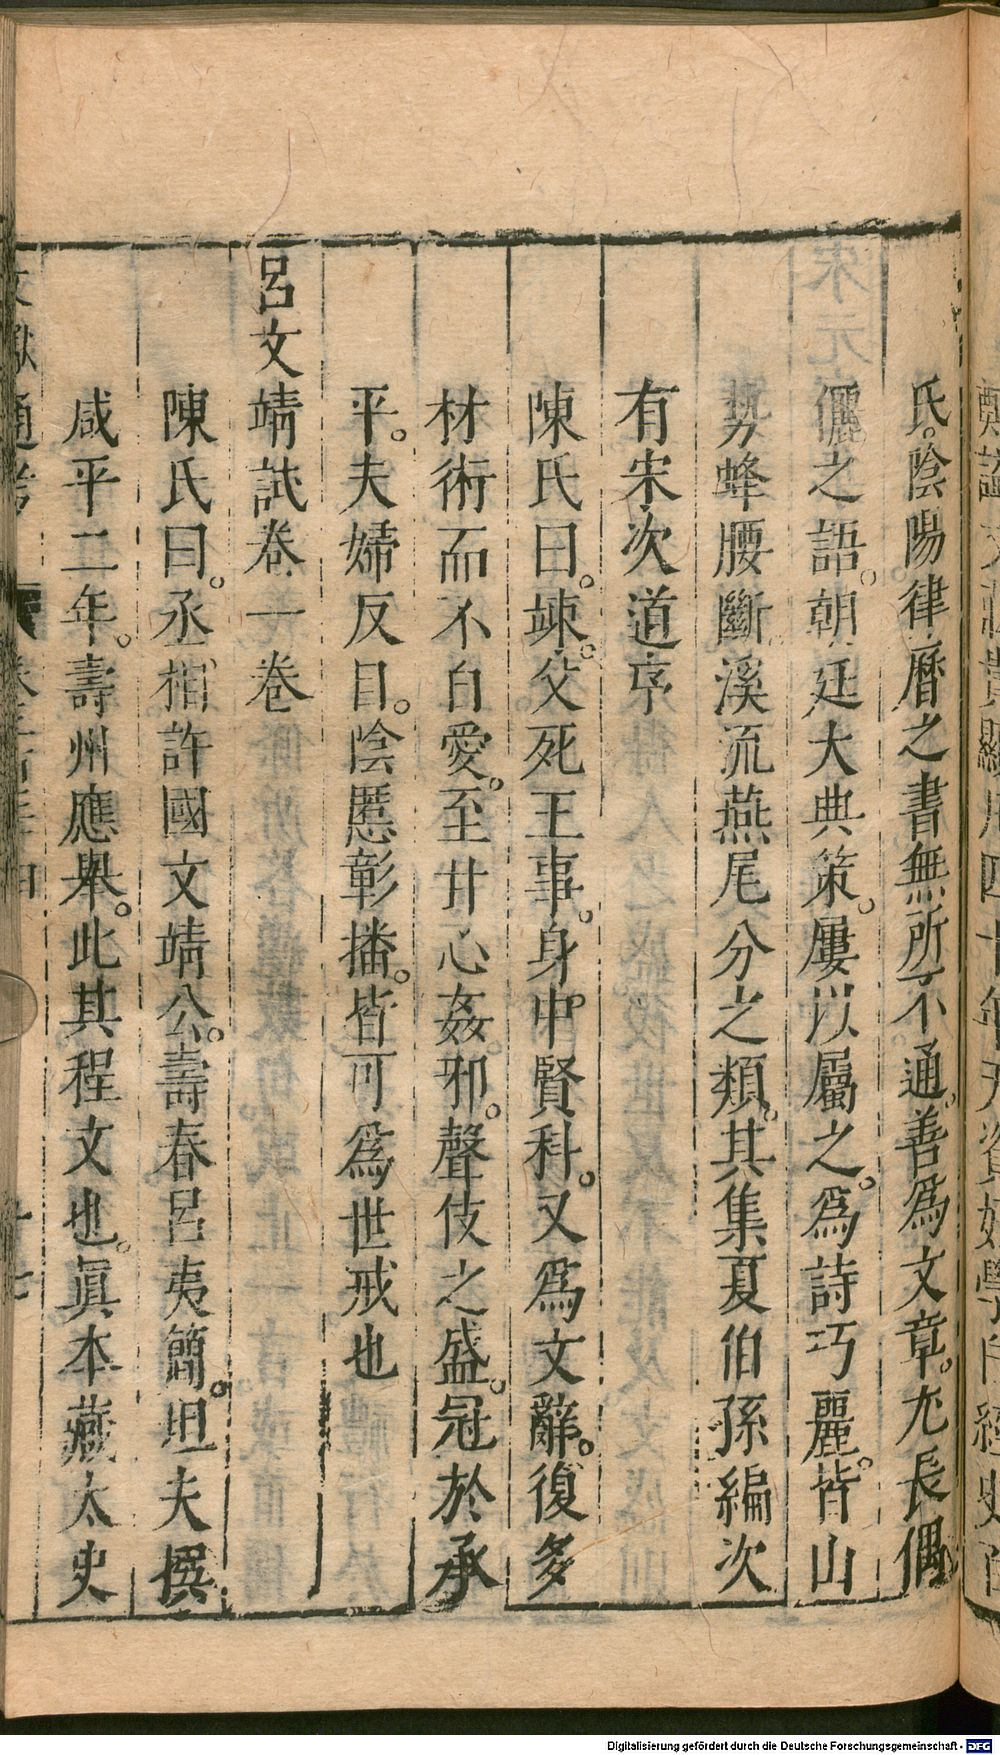 氏。陰陽律曆之書無所不通。善爲文章。尤長偶
儷之語。朝廷大典策。屢以屬之。爲詩巧麗。皆山
勢蜂腰斷溪流燕尾分之類。其集夏伯孫編次
有宋次道序
陳氏曰。竦。父死王事。身中賢科。又爲文辭。復多
材術而不自愛。至甘心姦邪。聲伎之盛。冠於承
平。夫婦反目。陰慝彰播。皆可爲世戒也
呂文靖試卷一卷
陳氏曰。丞相許國文靖公。壽春呂夷簡。坦夫撰
咸平二年。壽州應舉。此其程文也。眞本藏太史
文獻通考
十七
Digitalisierung gefördert durch die Deutsche Forschungsgemeinschaft - DFG